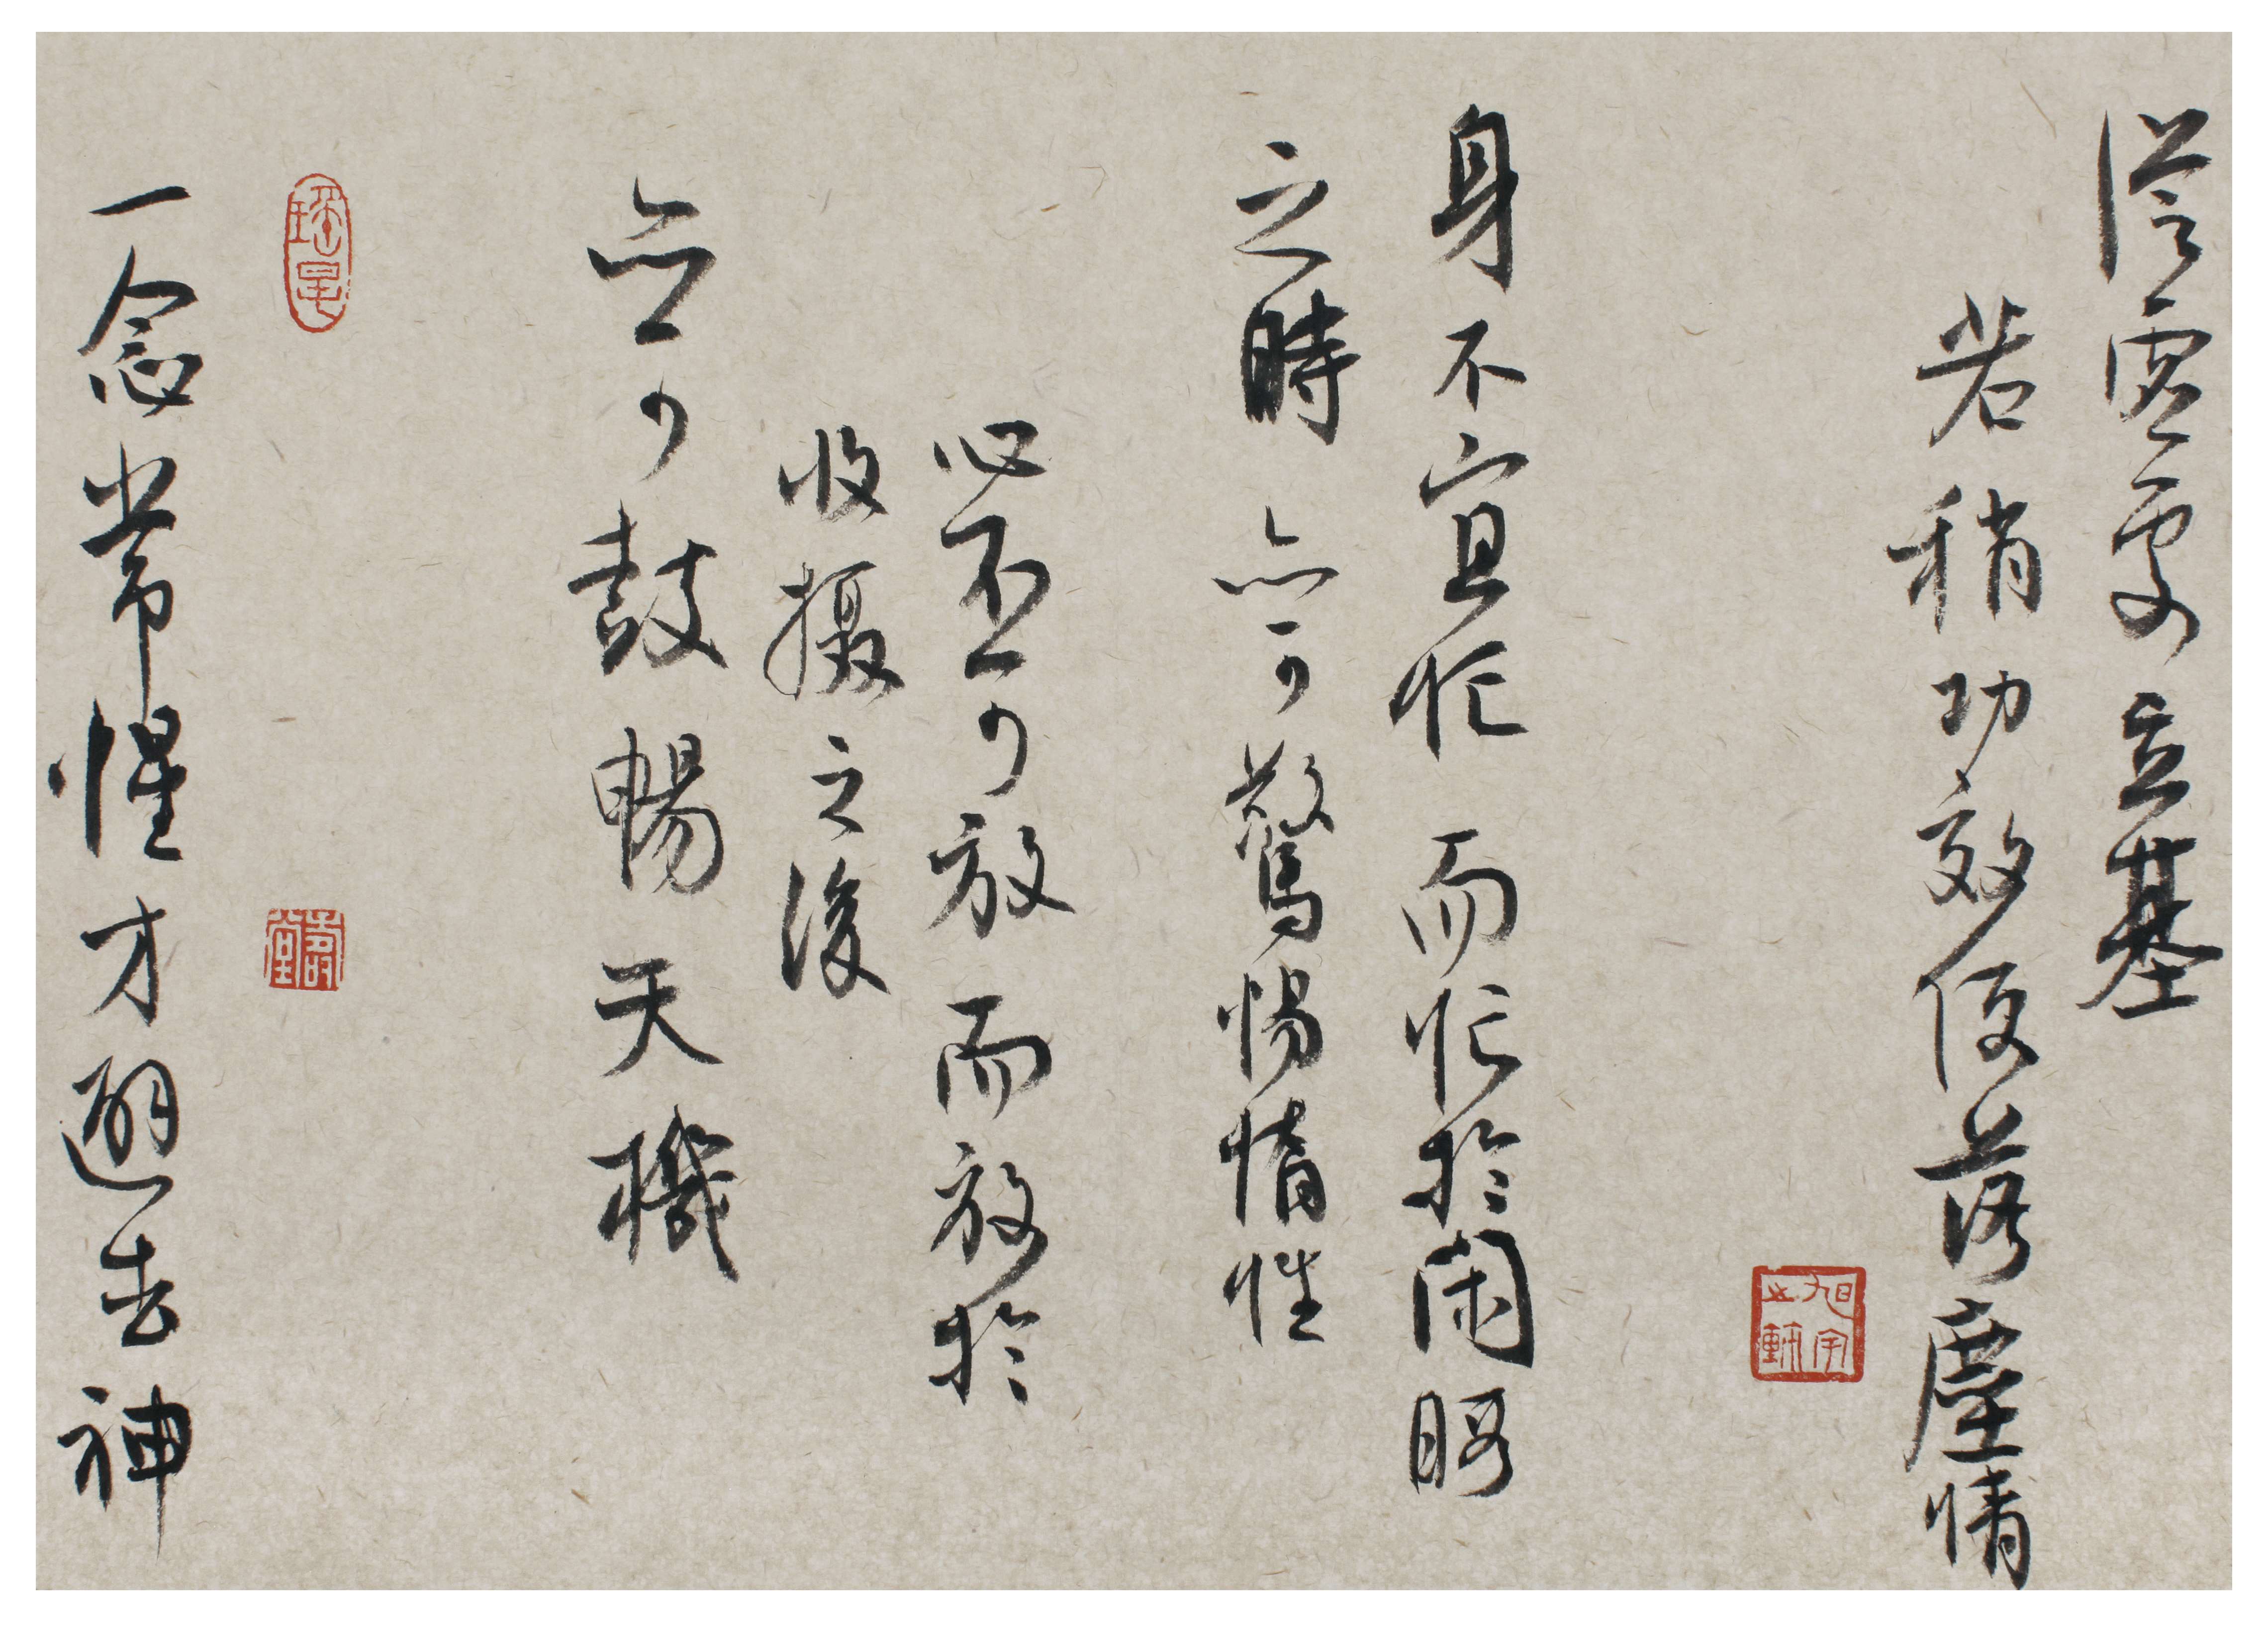 從虛處立基
若稍功效便落塵情
身不宜忙而忙於閑暇
之時亦可驚惕惰性
心不可放而放於
收攝之後
亦可鼓暢天機
一念常惺才避去神